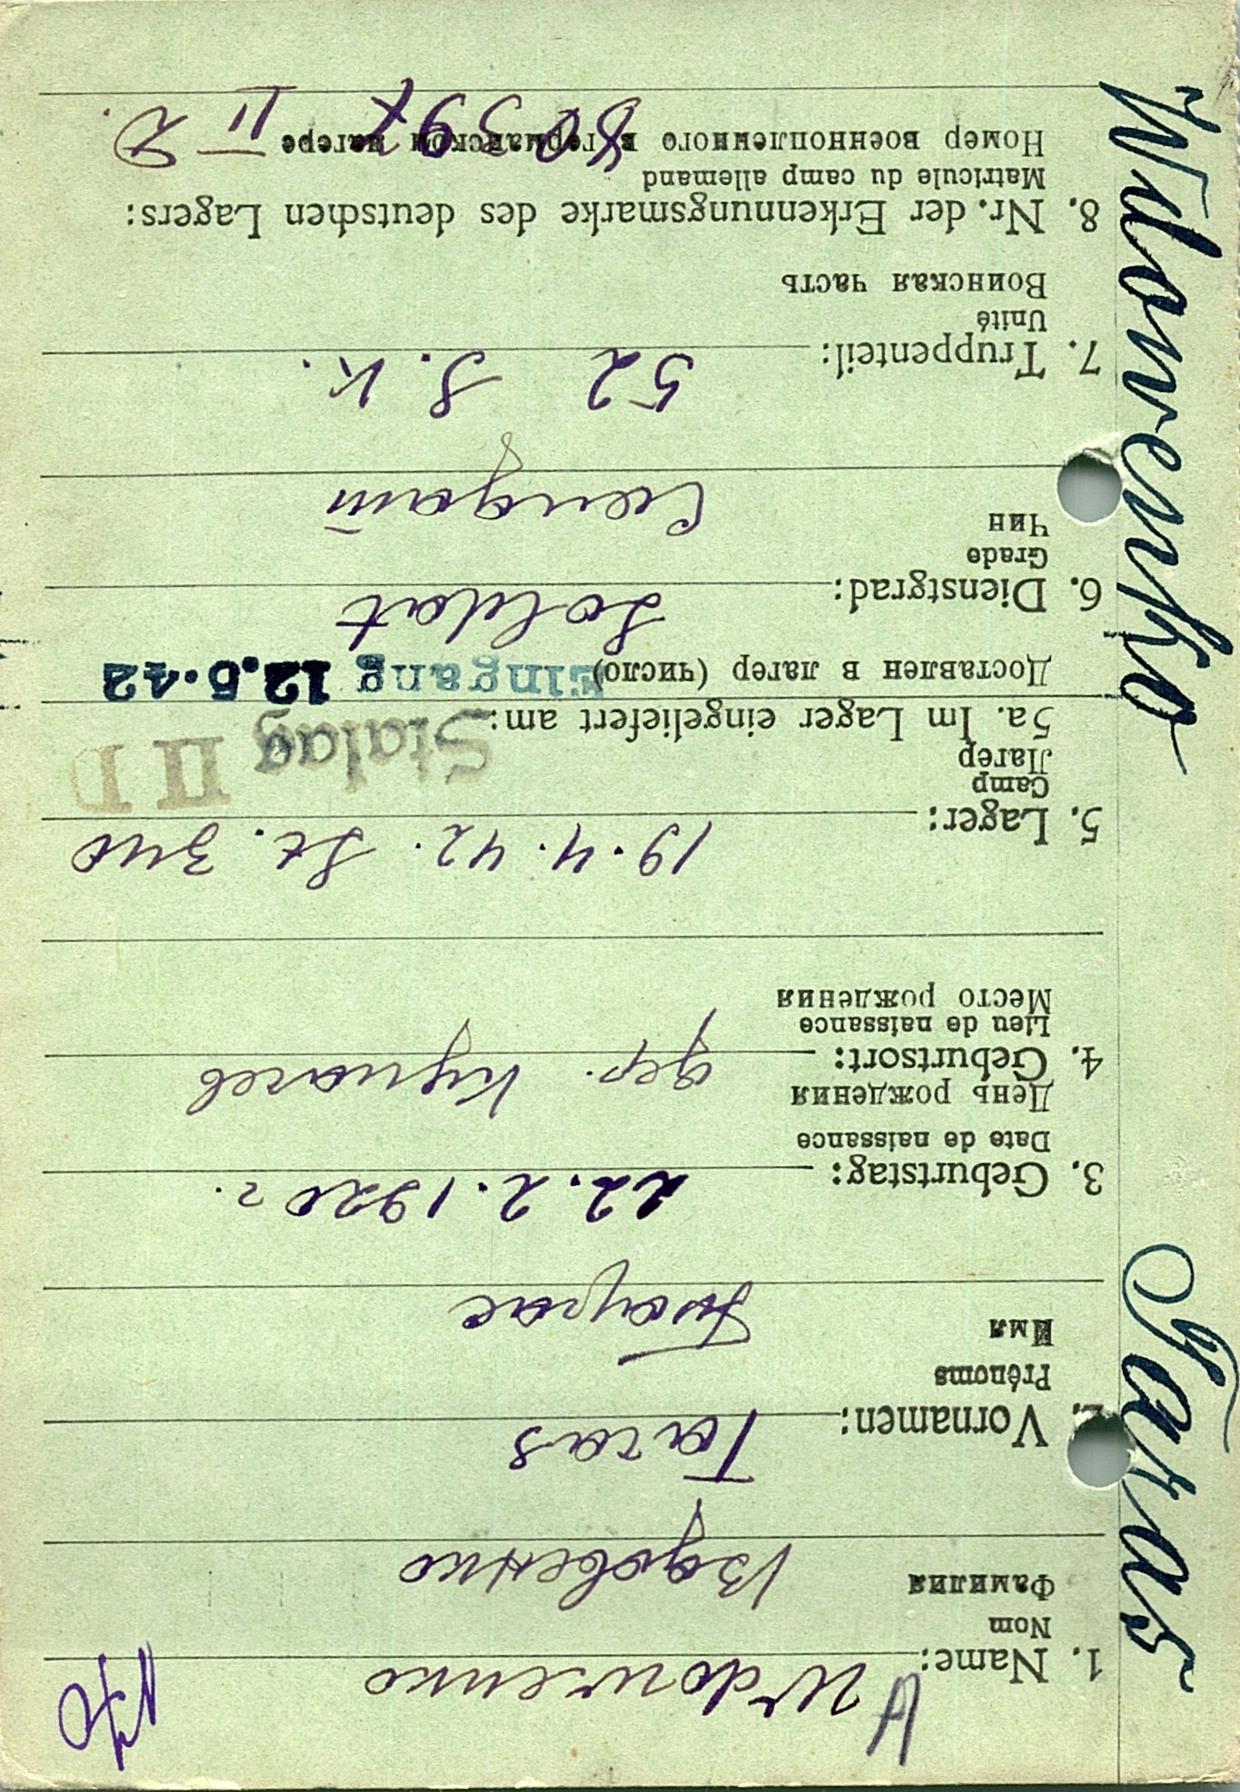 1. Name: Wdowenko
Nom
Фамилия Вдовенко
2. Vornamen: Taras
Prénoms
Имя Тарас
3. Geburtstag: 22.2.1920 г.
Date de naissance
День рождения
4. Geburtsort: дер.
Lieu de naissance
Место рождения
5. Lager: 19.4.42. St. 340
Camp
Лагер
Stalag II D
5a. Im Lager eingeliefert am:
Доставлен в лагер (число) Eingang 12.5.42
6. Dienstgrad: Soldat
Grade
Чин
7. Truppenteil: 52 S.K.
Unité
Воинская часть
8. Nr. der Erkennungsmarke des deutschen Lagers:
Matricule du camp allemand
Номер военнопленного в германском лагере II D.
Wdowenko Taras